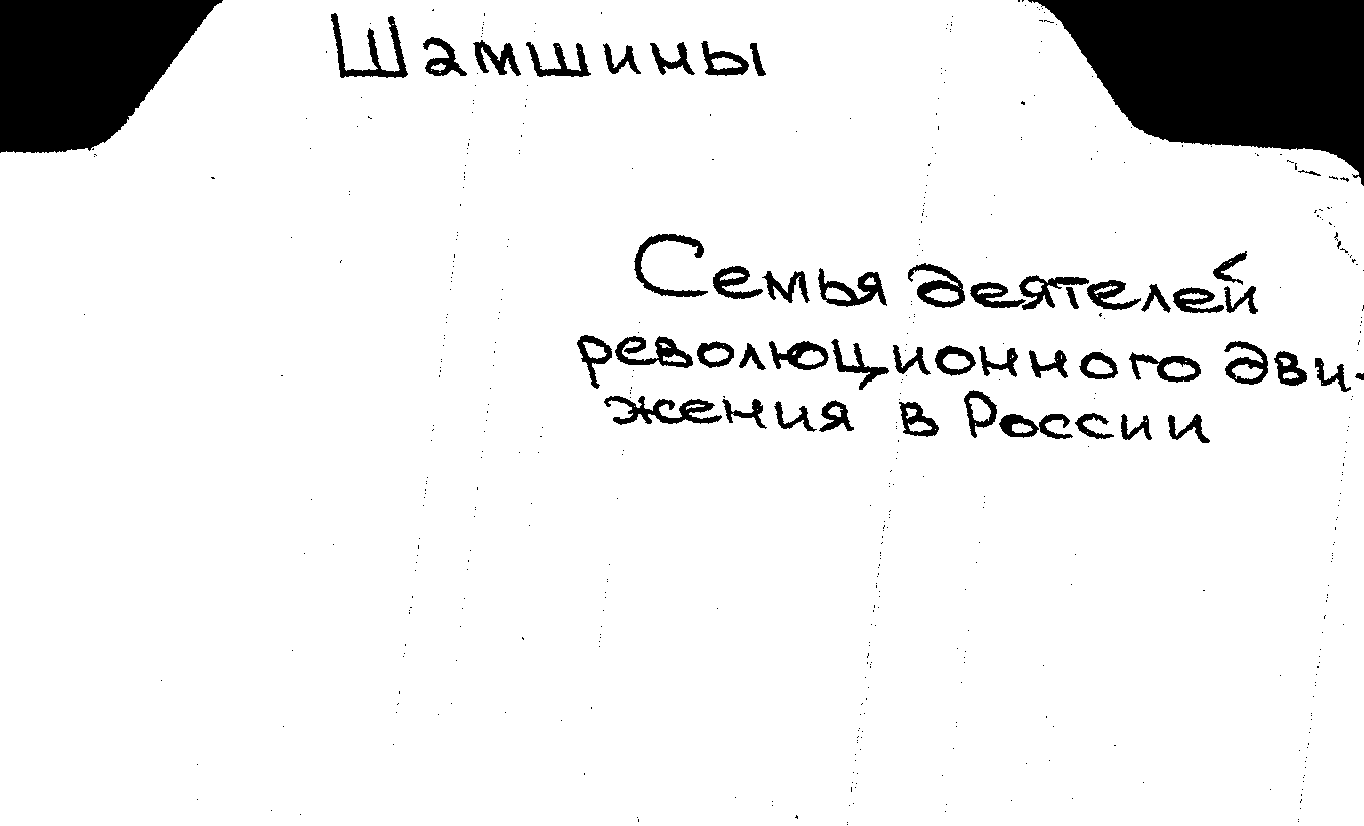 Шамшины
Семья деятелей
революционного дви-
жения в России